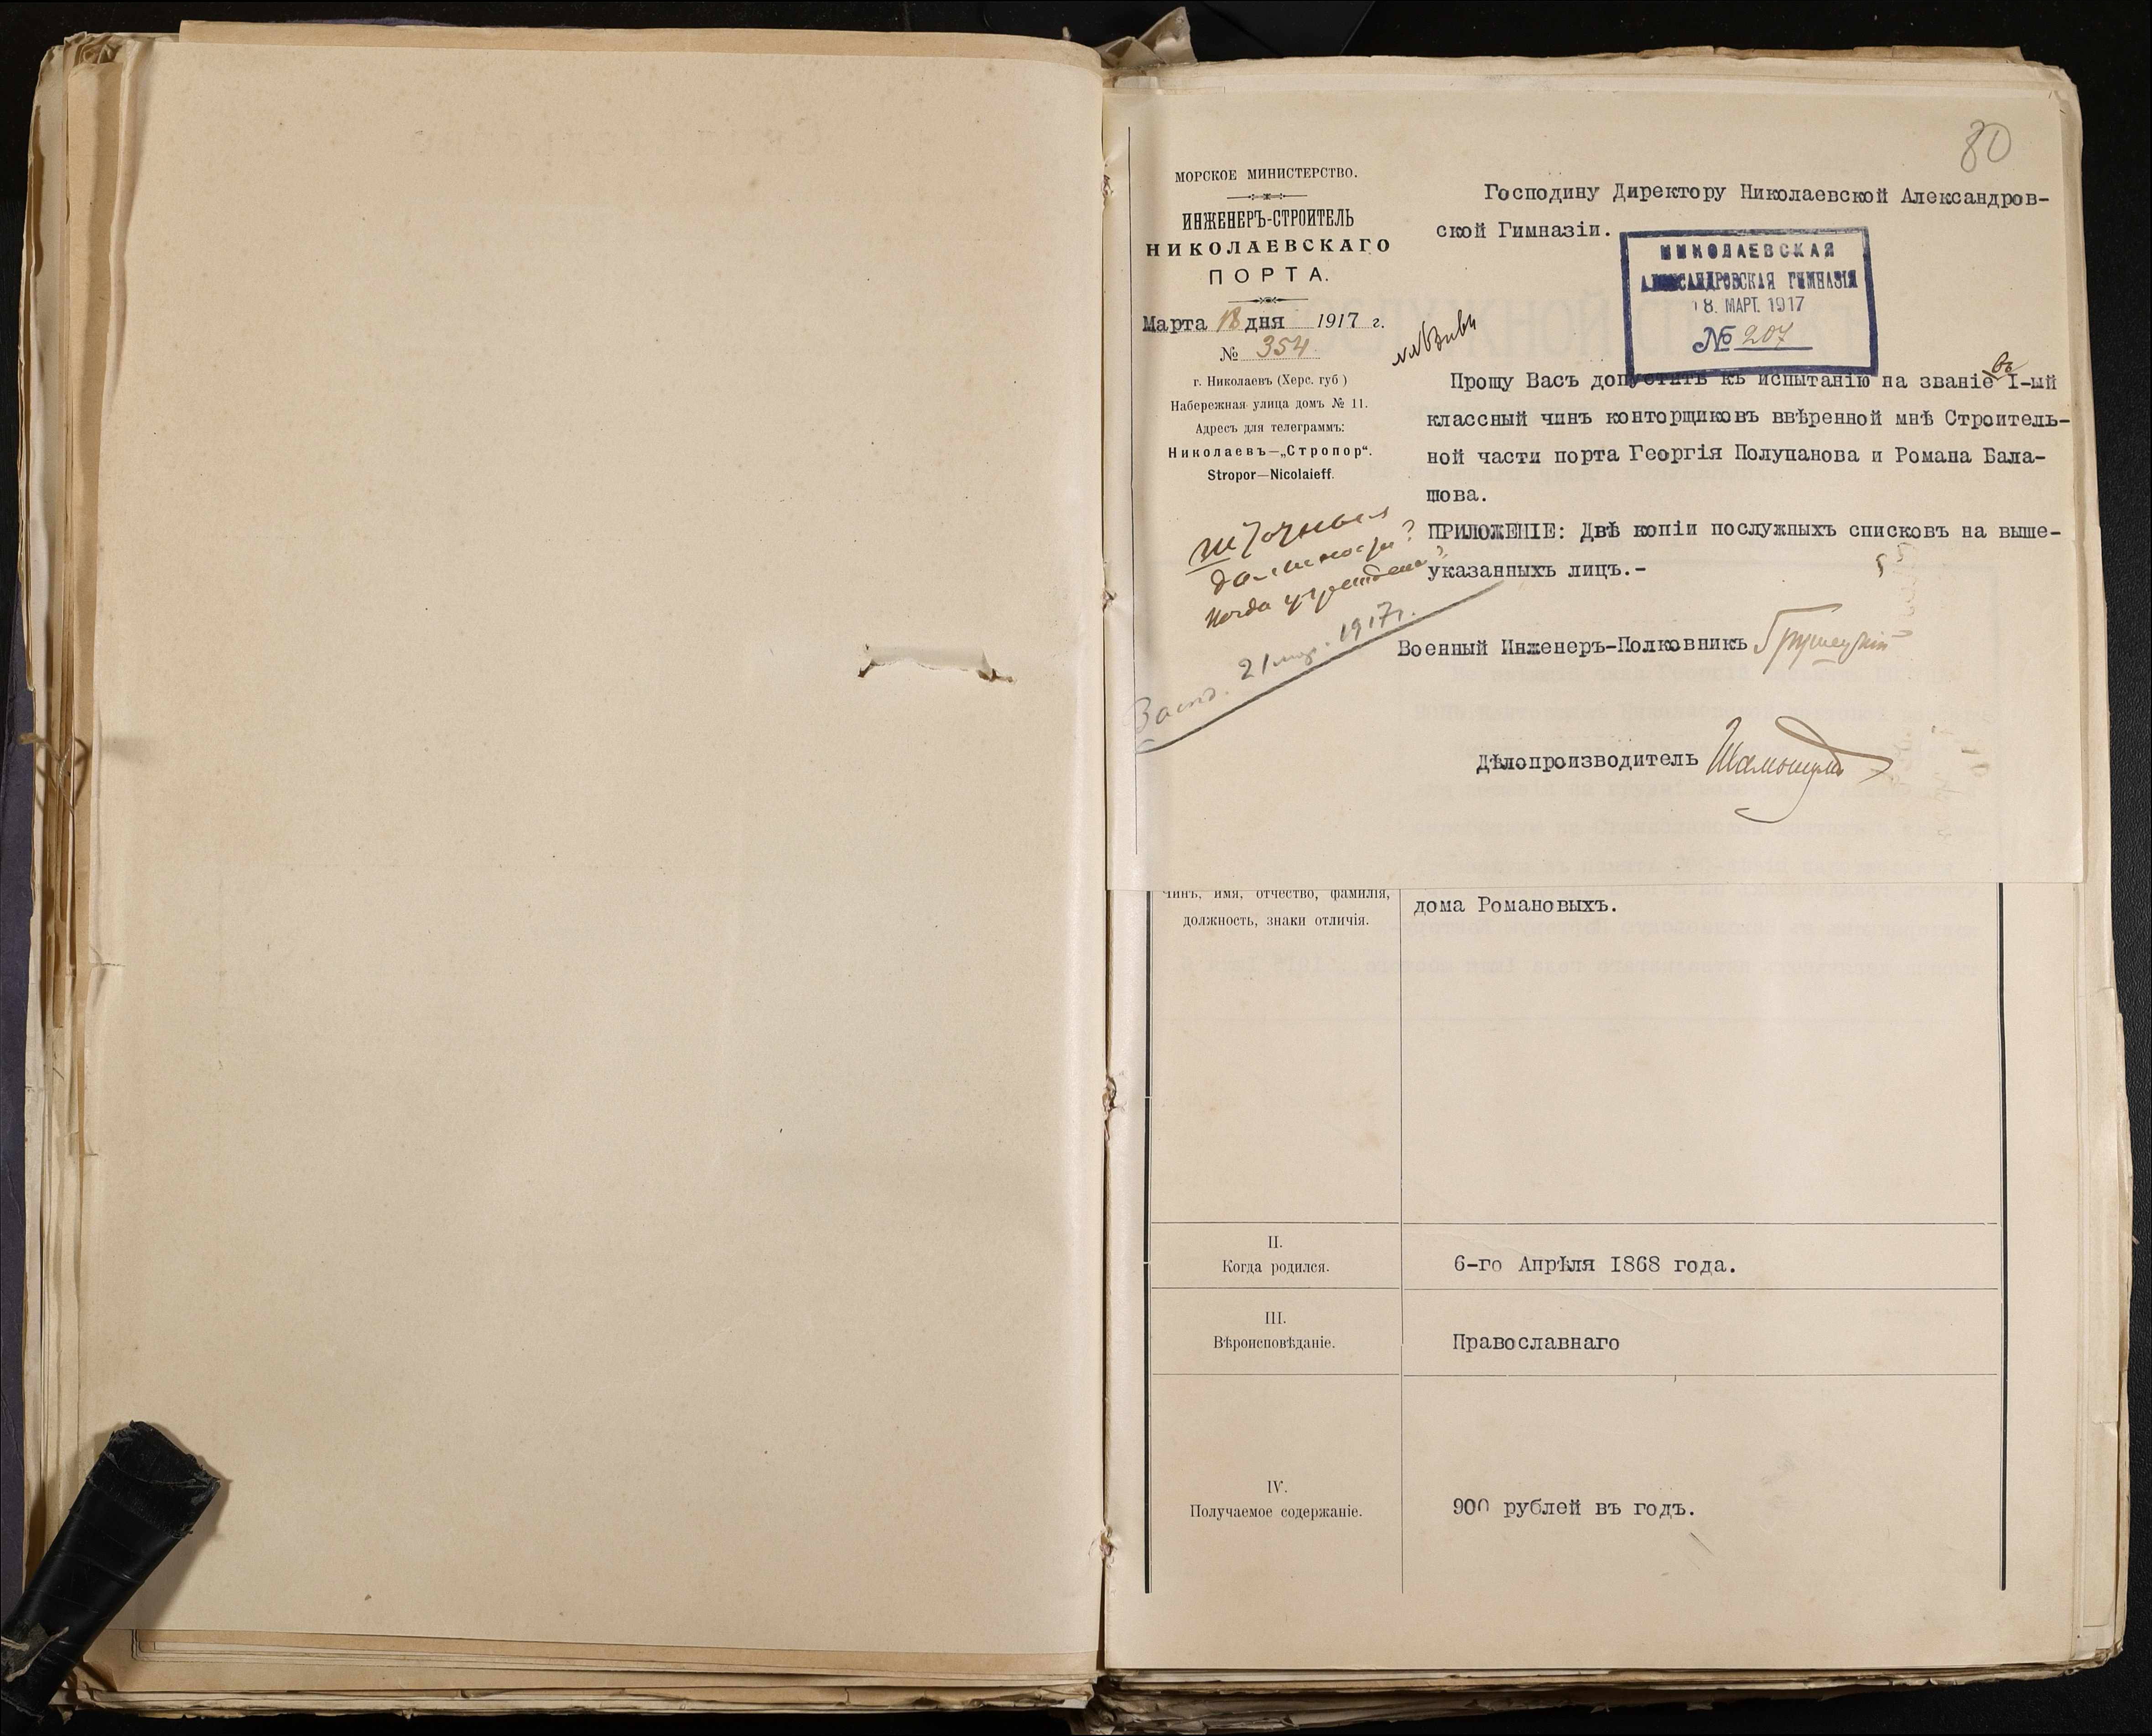 80
МОРСКОЕ МИНИСТЕРСТВО.
ИНЖЕНЕРЪ-СТРОИТЕЛЬ
НИКОЛАЕВСКАГО
ПОРТА.
Марта 18 дня 1917 г.
№ 354
г. Николаевъ (Херс. губ)
Набережная улица домъ № 11.
Адресъ для телеграммъ:
Николаевъ—„Стропор“.
Stropor—Nicolaieff.
штатныя
должности?
Когда
21 мар. 1917 г.
Господину Директору Николаевской Александров-
ской Гимназіи.
НИКОЛАЕВСКАЯ
АЛЕКСАНДРОВСКАЯ ГИМНАЗІЯ
18. МАРТ. 1917
№ 207
Прошу Васъ допустить къ испытанію на званіе въ I-ый
классный чинъ конторщиковъ ввѣренной мнѣ Строитель-
ной части порта Георгія Полупанова и Романа Бала-
шова.
ПРИЛОЖЕНІЕ: Двѣ копіи послужныхъ списковъ на выше-
указанныхъ лицъ.-
Военный Инженеръ-Полковникъ
Дѣлопроизводитель
Чинъ, имя, отчество, фамилія,
должность, знаки отличія.
дома Романовыхъ.
II.
Когда родился.
6-го Апрѣля 1868 года.
III.
Вѣроисповѣданіе.
Православнаго
IV.
Получаемое содержаніе.
900 рублей въ годъ.